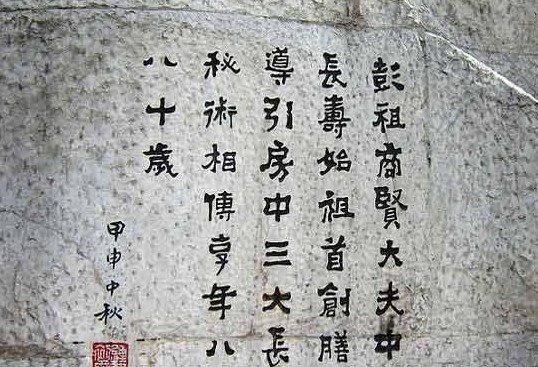 彭祖商賢大夫中
長壽始祖首創膳
導引房中三大長
秘術相傳享年八
八十歲
甲申中秋